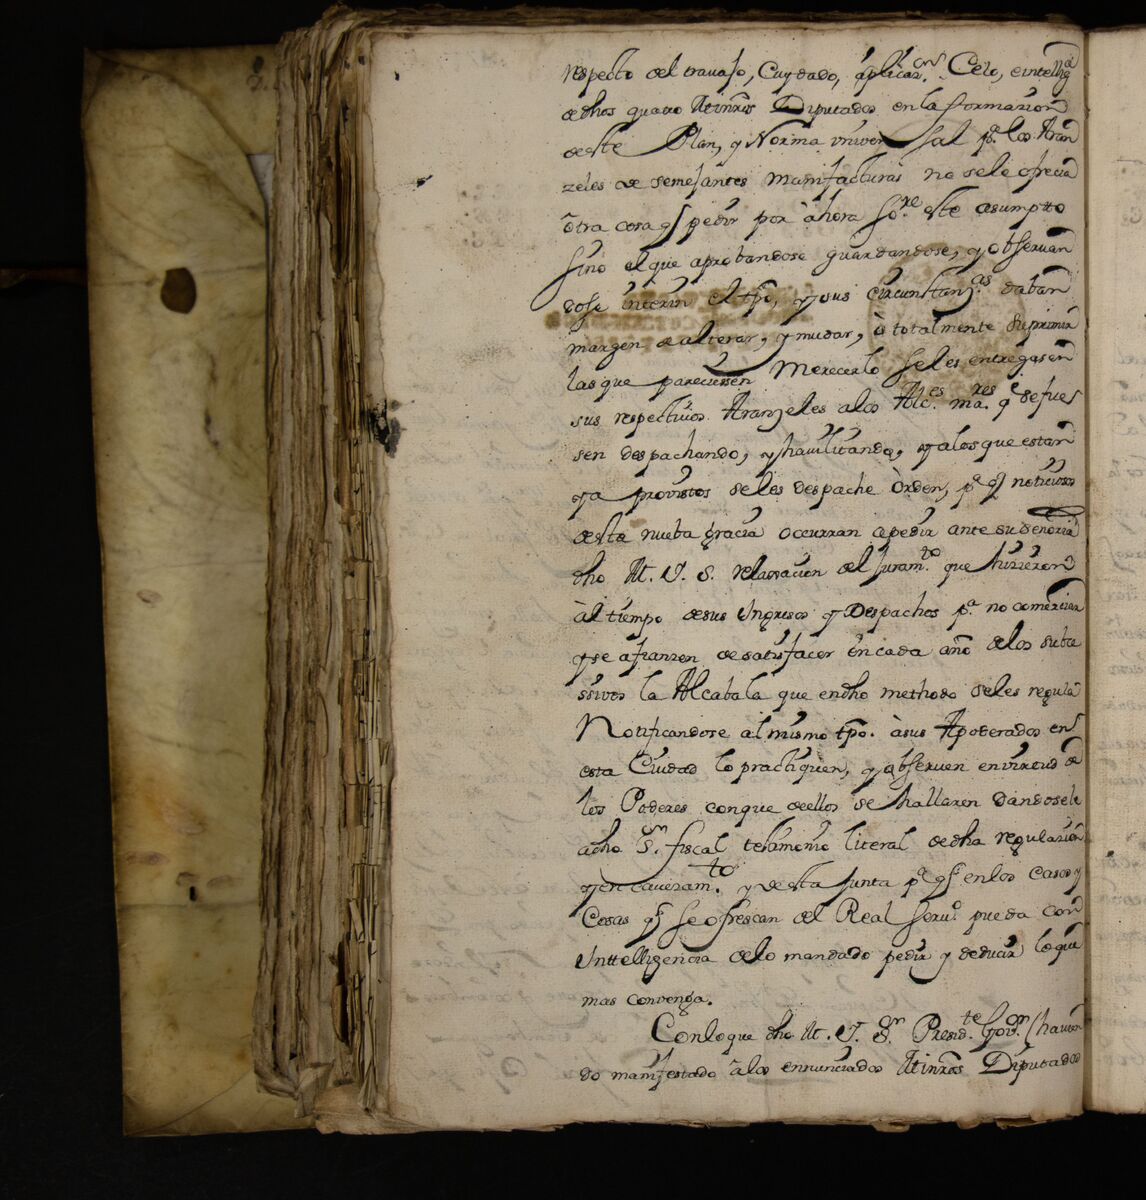 respecto del travajo, Cuydado, áplicac.on Celo, e intellig.a
dedhos quatro Ministros Diputados en la formazion
deste Plan, y Norma univer sal p.a los Aran
zeles de semejantes manifacturas no sele ofrecia
ôtra cosa q pedir por âhora so.re este asumptto
sino el que aprobandose guardandose, y observan
dose ínterin el tpô, y sus círcunstanz.as daban
margen de alterar, y mudar, ò totalmente suprimir
las que pareciessen Merecerlo seles entregasen
sus respectivos Aranzeles alos Alc.es ma.res q.e sefues
sen despachando, y havilitando, y alos que estan
ya provistos seles despache Òrden, p.a q noticiosos
desta nueba gracia occurran apedir ante su Señoria
dho M. Y. S. relaxacion del Juram.to que hizieron
àl tiempo desus Yngresos y Despachos p.a no comerciar
y se afianzen desatisfacer en cada año delos subce
ssivos la Alcabala que endho methodo seles regula
Notificandose al mismo tpô. àsus Apoderados en
esta Ciudad lo practiquen, y observen en virtud de
los Poderes conque dellos se hallaren dandosele
adho S.or fiscal testimonio literal dedha regulazion
y encavezam.to y desta Junta p.a q en los casos y
Cosas q se ofrescan del Real serv.o pueda con
Ynttelligencia delo mandado pedir y deducir loque
mas convenga.
Conloque dho M. Y. S.or Presid.te Gov.or (havien
do manifestado âlos ennunciados Ministros Diputados